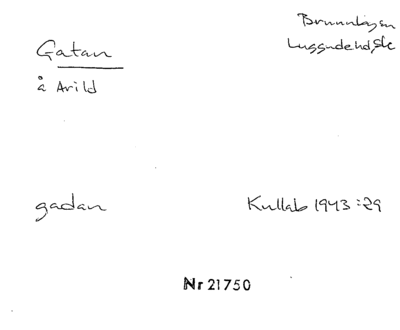 Gatan
Brunnbysn
å Arild
Luggudehdskr
gadan
Kullab 1943:29
Nr 21750